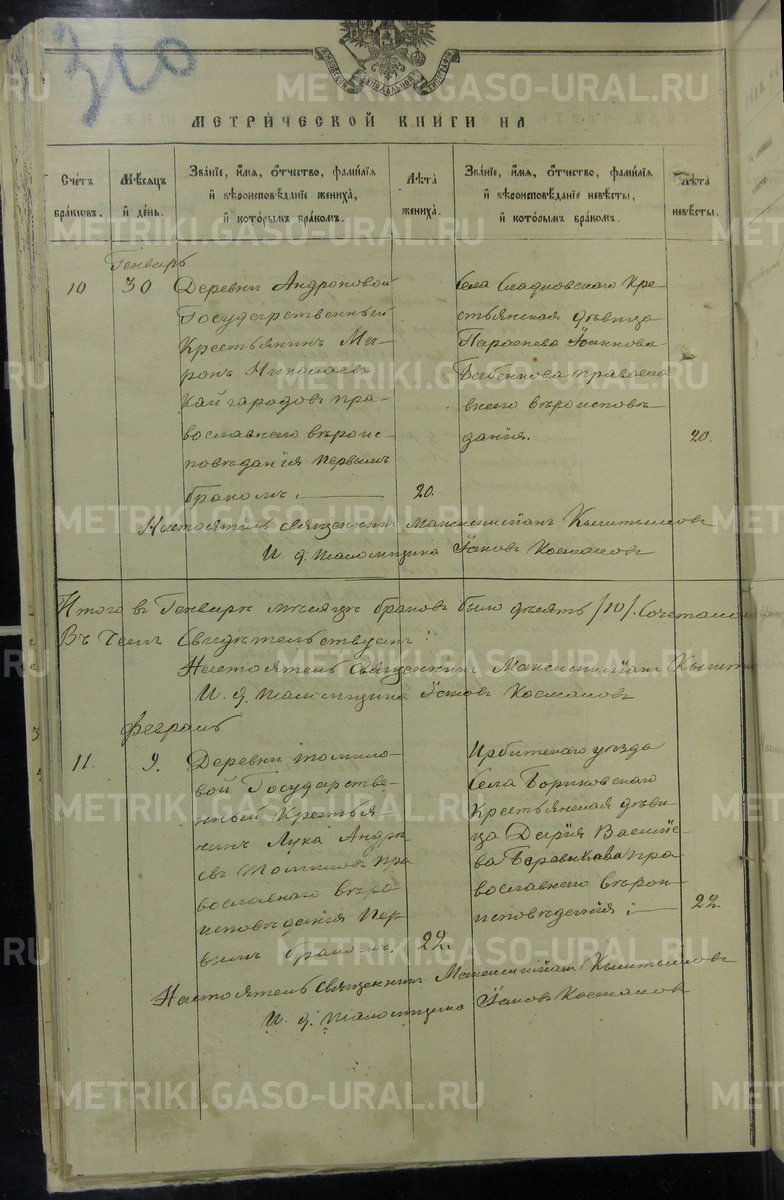 310
МЕТРИ́ЧЕСКОЙ КНИГИ НА
Счетъ браковъ.
Мѣсяцъ и день.
Зва́нїе, и҆́мя, ѻ҆́тчество, фами́лїя
и҆ вѣроисповѣ́данїе жениха̀,
и҆ кото́рымъ бра́комъ.
Лѣта̀ жениха̀.
Зва́нїе, и҆́мя, ѻ҆́тчество, фами́лїя
и҆ вѣроисповѣ́данїе невѣ́сты,
и҆ кото́рымъ бра́комъ.
Лѣта̀ невѣ́сты.
Генварь
10
30
Деревни Андроновой
Государственный
Крестьянинъ Ми-
ронъ Николаевъ
Кайгародовъ пра-
вославнаго вѣроис-
повѣданія первымъ
бракомъ.
20.
Села Сладковскаго Кре-
стьянская дѣвица
Параскева
православ-
наго вѣроисповѣ-
данія.
20.
Настоятель священникъ Максимиліанъ Кыштымовъ
И. д. псаломщика Іаковъ Космаковъ
Итого въ Генварѣ мѣсяцѣ браковъ было десять /10/. Сочетаній
Въ чемъ Свидѣтельствуютъ:
Настоятель священникъ Максимиліанъ
И. д. псаломщика Іаковъ Космаковъ
Февраль
11.
9.
Деревни Томило-
вой Государстве-
нный Крестья-
нинъ Лука Андре-
евъ Томиловъ пра
вославнаго вѣро
исповѣданія пер-
вымъ бракомъ.
22.
Ирбитскаго уѣзда
Села
Крестьянская дѣви-
ца Дарія Василіе-
ва пра
вославнаго вѣрои-
исповѣданія;
22.
Настоятель священникъ Максимиліанъ Кыштымовъ
И. д. псаломщика Іаковъ Космаковъ
METRIKI.GASO-URAL.RU